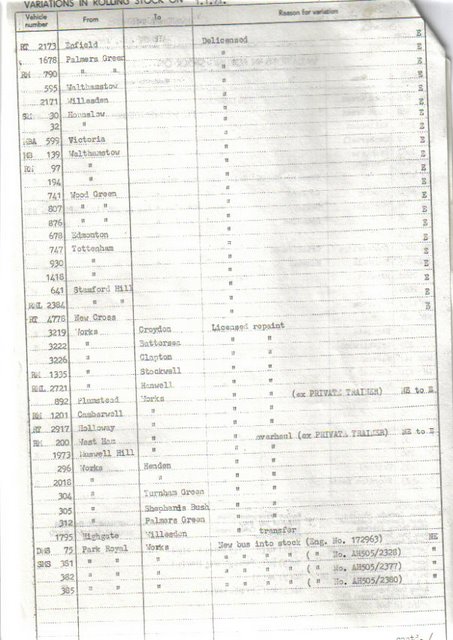 VARIATIONS IN ROLLING STOCK ON 1.1.
Vehicle number From To Reason for variation
RT 2173 Enfield Delicensed E
1678 Palmers Green " E
RM 790 " " " E
595 Walthamstow " E
2171 Willesden " E
30 Hounslow " E
32 " " E
MBA 599 Victoria " E
MB 139 Walthamstow " E
RM 97 " " E
194 " " E
741 Wood Green " E
807 " " " E
876 " " " E
678 Edmonton " E
747 Tottenham " E
930 " " E
1418 " " E
641 Stamford Hill " E
RML 2384 " " " E
RT 4778 New Cross "
3219 Works Croydon Licensed repaint
3222 " Battersea " "
3226 " Clapton " "
RM 1335 " Stockwell " "
RML 2721 " Hanwell " "
892 Plumstead Works " " (ex PRIVATE TRAINER) NE to E
RM 1201 Camberwell " " "
RT 2917 Holloway " " "
RM 200 West Ham " " overhaul (ex PRIVATE TRAINER) NE to E
1973 Muswell Hill " " "
296 Works Hendon " "
2018 " " " "
304 " Turnham Green " "
305 " Shepherds Bush " "
312 " Palmers Green " "
1795 Highgate Willesden " transfer
DMS 75 Park Royal Works New bus into stock (Eng. No. 172963) NE
SMS 381 " " " " " " " ( " No. AH505/2328) "
382 " " " " " " " ( " No. AH505/2377) "
385 " " " " " " " ( " No. AH505/2380) "
contd. /